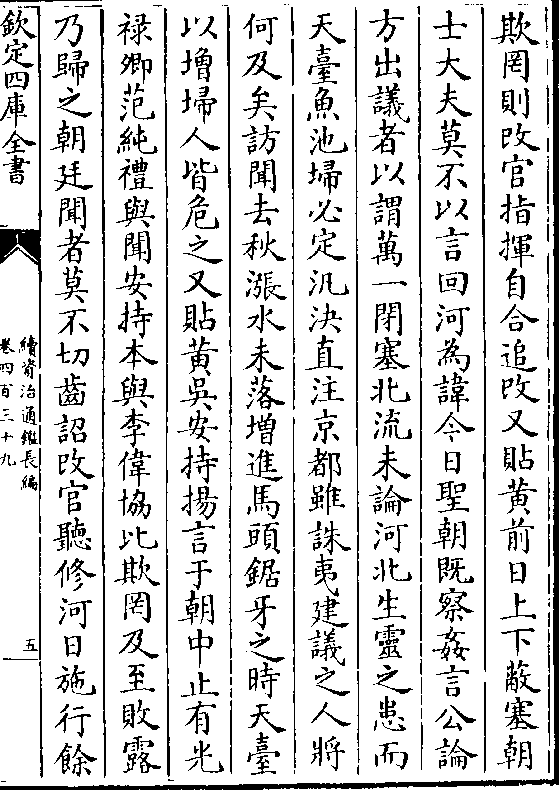 欺罔則改官指揮自合追改又貼黄前日上下蔽塞朝
士大夫莫不以言回河為諱今日聖朝既察姦言公論
方出議者以謂萬一閉塞北流未論河北生靈之患而
天臺魚池埽必定汎決直注京都雖誅夷建議之人將
何及矣訪聞去秋漲水未落增進馬頭鋸牙之時天臺
以增埽人皆危之又貼黄吳安持揚言于朝中止有光
禄卿范純禮與聞安持本與李偉協比欺罔及至敗露
乃歸之朝廷聞者莫不切齒詔改官聽修河日施行餘
欽定四庫全書
續資治通鑑長編
卷四百三十九
五